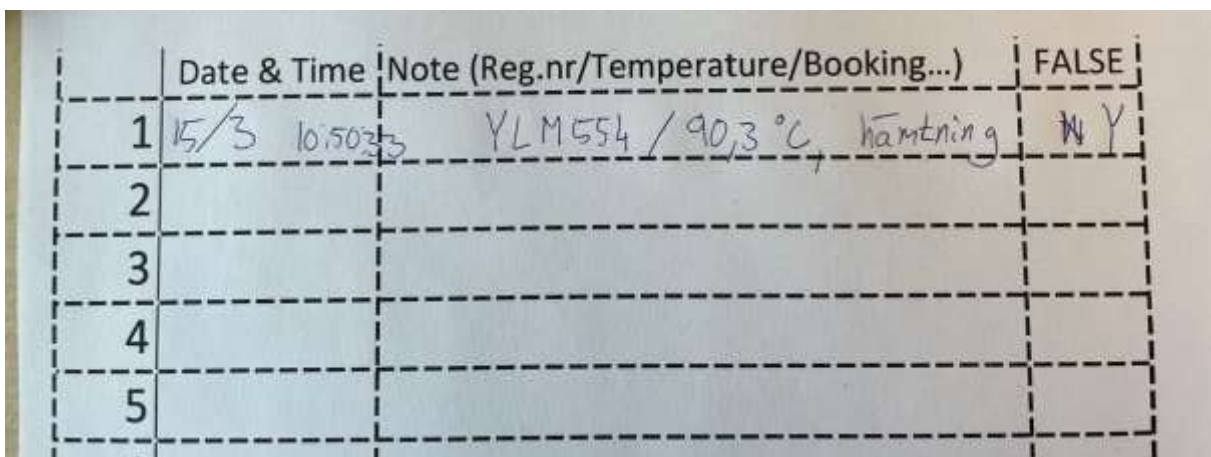 Date & Time Note (Reg.nr/Temperature/Booking...) FALSE
1 15/3 10:50:33 YLM554 / 90,3 °C, hämtning Y
2
3
4
5